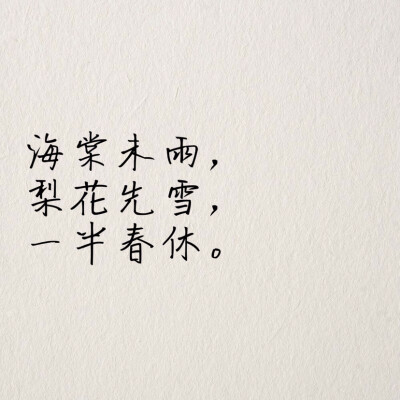 海棠未雨，
梨花先雪，
一半春休。